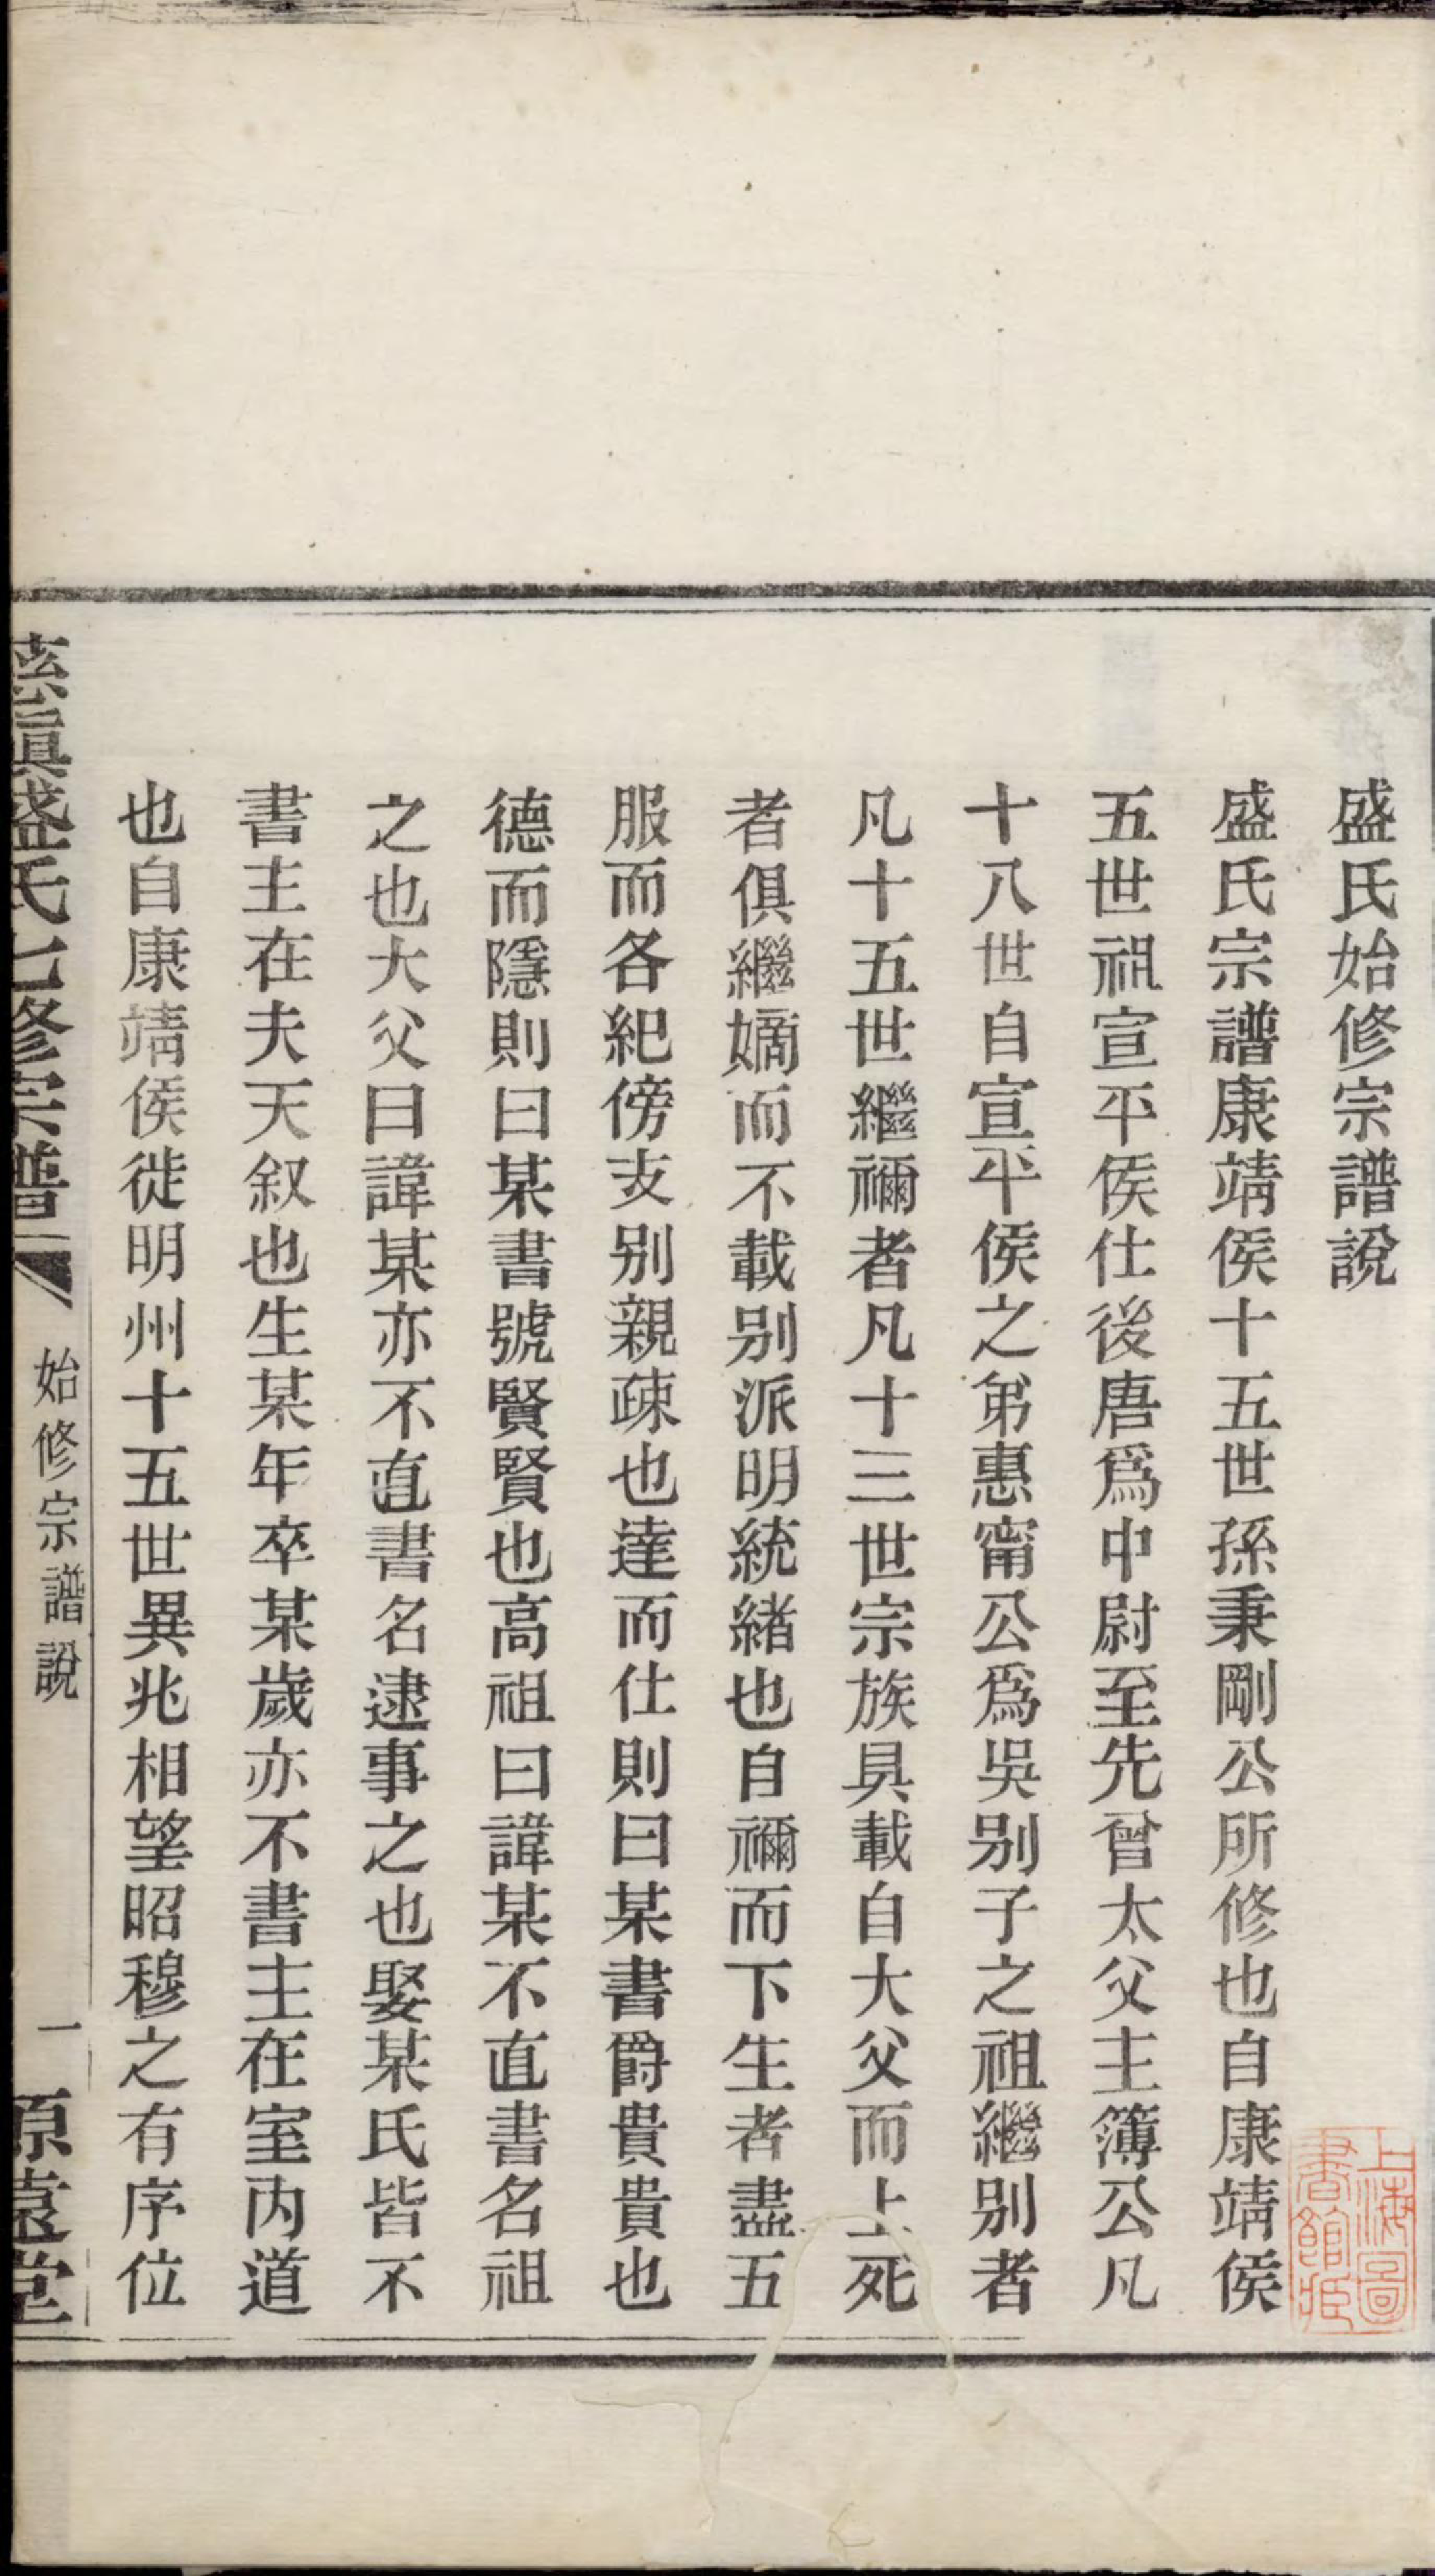 盛氏始修宗譜說
盛氏宗譜康靖侯十五世孫秉剛公所修也自康靖侯
五世祖宣平侯仕後唐爲中尉至先曾太父主簿公凡
十八世自宣平侯之弟惠甯公爲吳别子之祖繼别者
凡十五世繼禰者凡十三世宗族具載自大父而上死
者俱繼嫡而不載别派明統緒也自禰而下生者盡五
服而各紀傍支别親疎也達而仕則曰某書爵貴貴也
德而隱則曰某書號賢賢也高祖曰諱某不直書名祖
之也大父曰諱某亦不直書名逮事之也娶某氏皆不
書主在夫天叙也生某年卒某歲亦不書主在室内道
也自康靖侯徙明州十五世異兆相望昭穆之有序位
慈鎮盛氏七修宗譜
始修宗譜說
一
原遠堂
上海圖書館藏